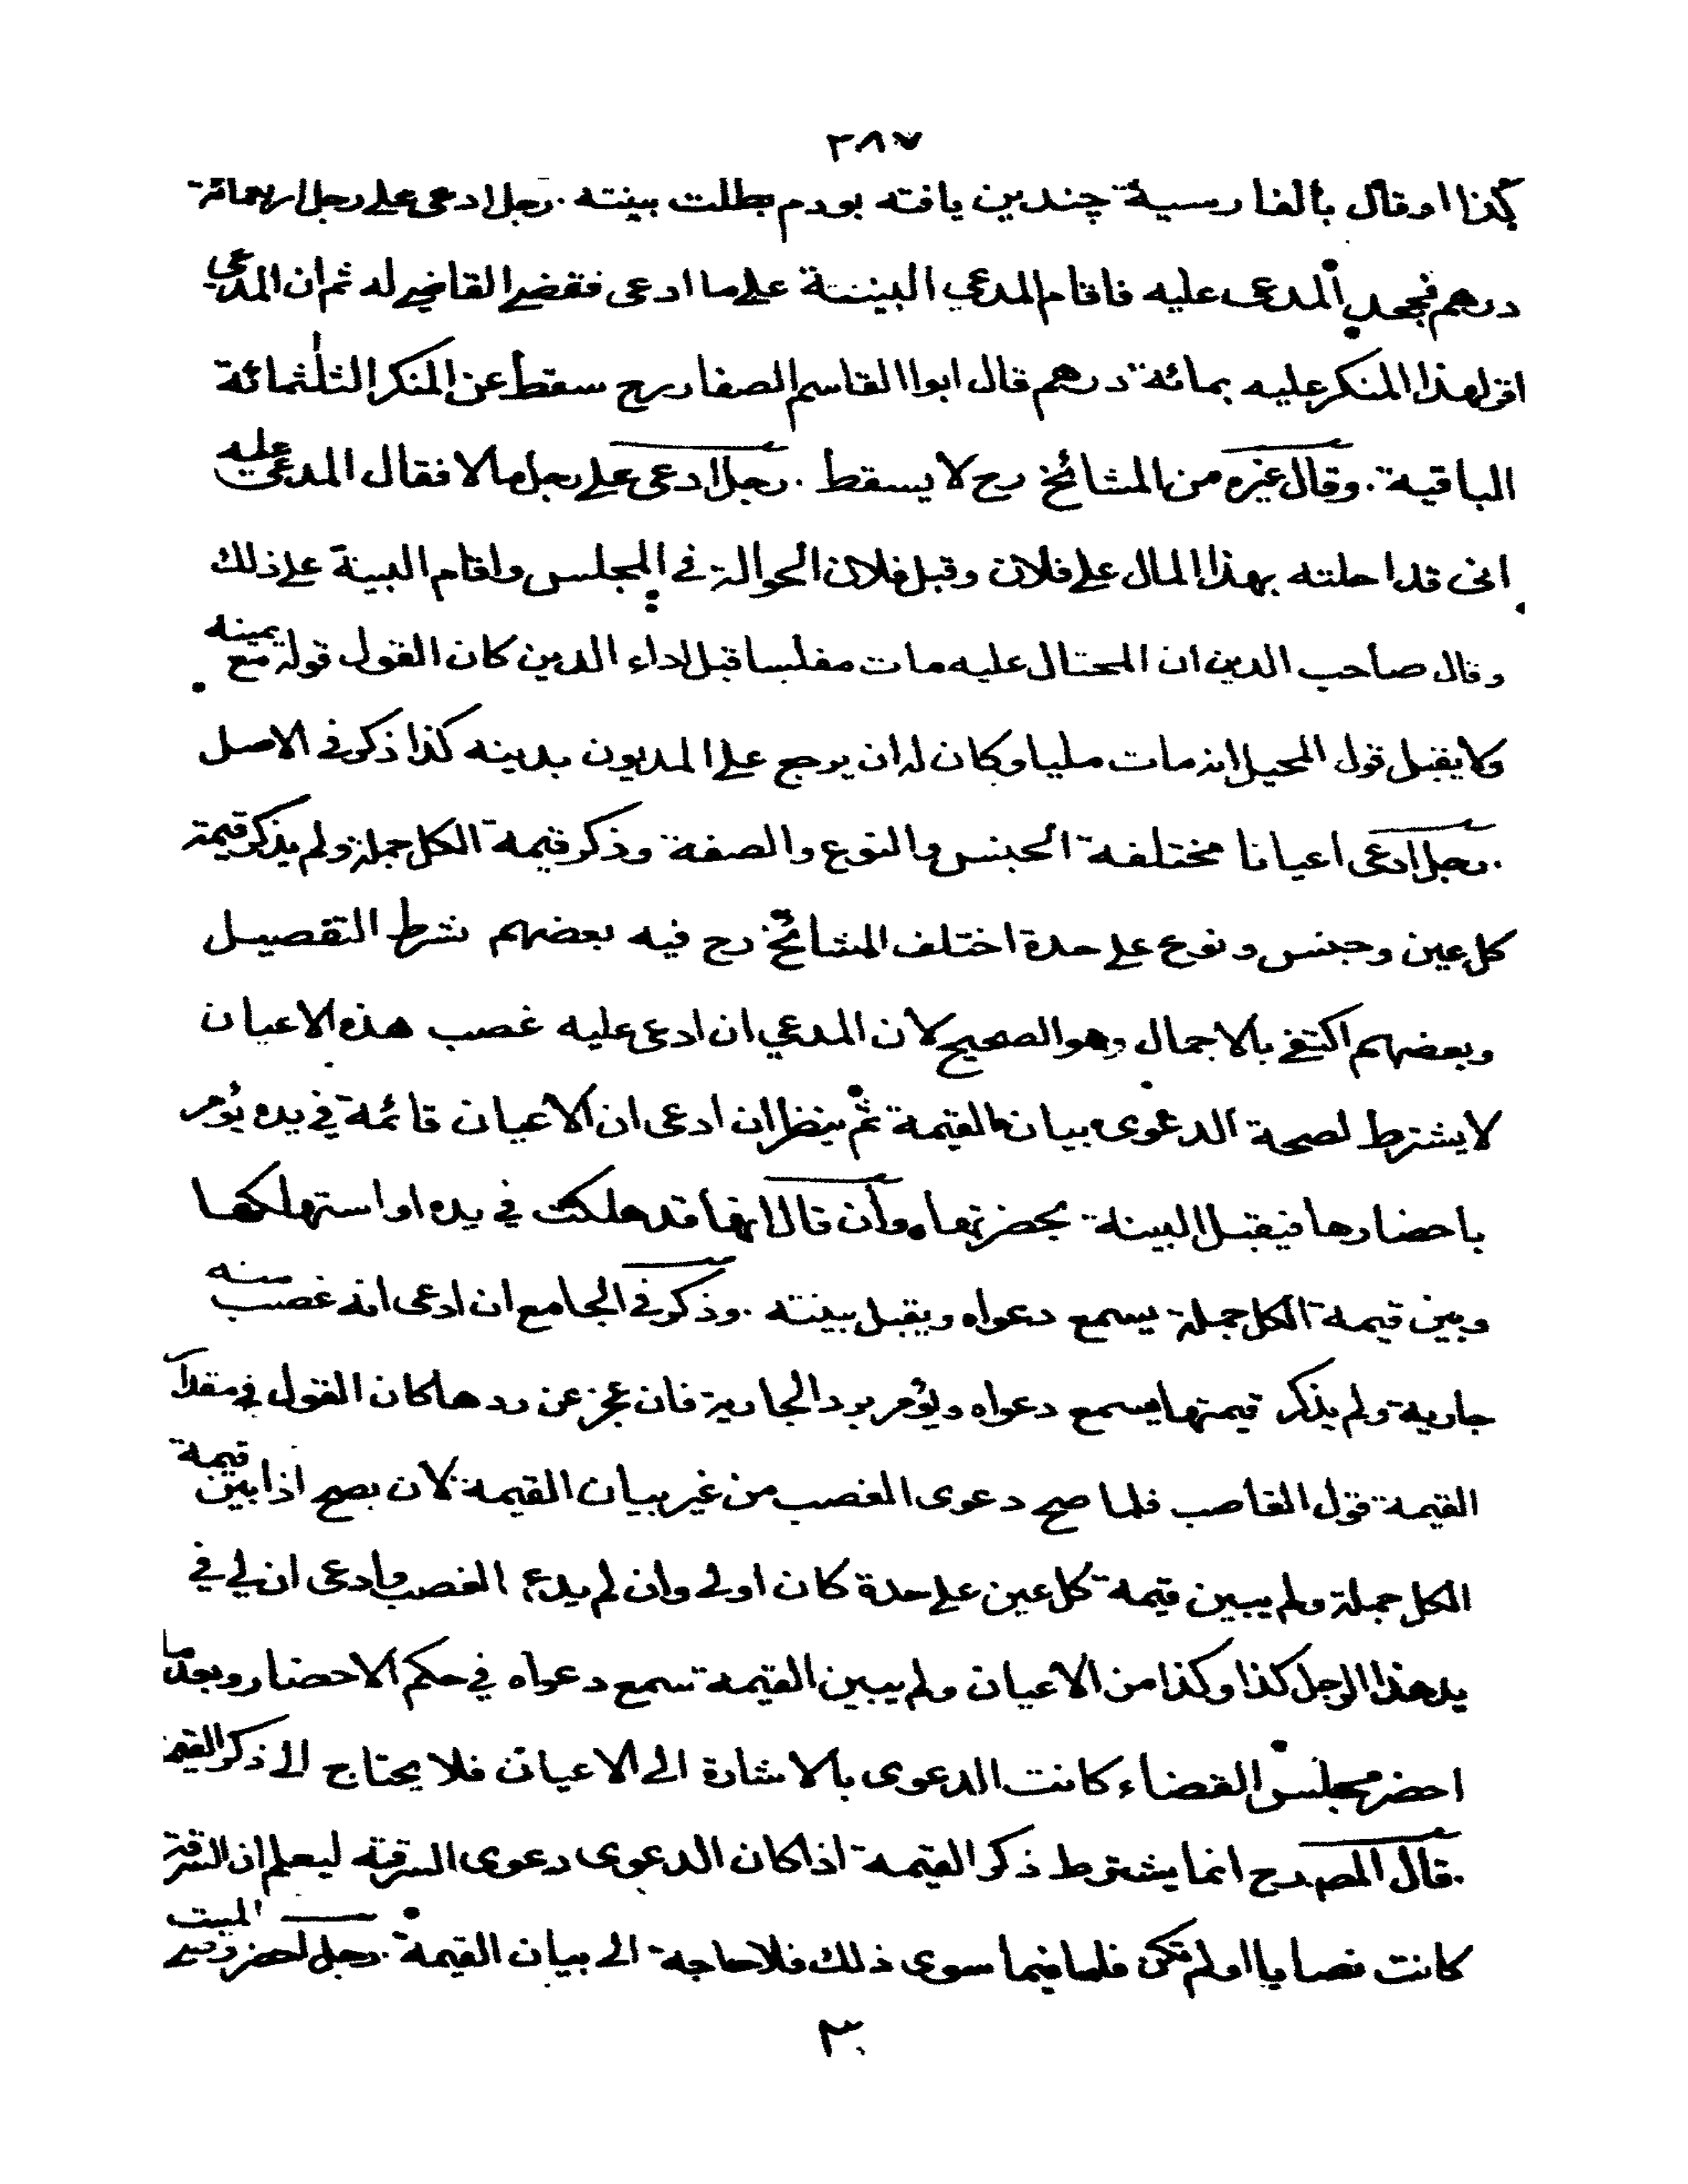 ٣٨٧
كذا او قال بالفارسية چندين يافته بودم بطلت بينته . رجل ادعى على رجل اربعمائة
درهم فجحد المدعى عليه فاقام المدعي البينة على ما ادعى فقضى القاضي له ثم ان المدعي
اقر لهذا المنكر عليه بمائة درهم قال ابوا القاسم الصفار رح سقط عن المنكر الثلثمائة
الباقية . وقال غيره من المشائخ رح لا يسقط . رجل ادعى على رجل مالا فقال المدعى عليه
انى قد احلته بهذا المال على فلان وقبل فلان الحوالة في المجلس واقام البينة على ذلك
وقال صاحب الدين ان المحتال عليه مات مفلسا قبل اداء الدين كان القول قوله مع يمينه
ولا يقبل قول المحيل انه مات مليا وكان له ان يرجع على المديون بدينه كذا ذكر في الاصل
. رجل ادعى اعيانا مختلفة الجنس والنوع والصفة وذكر قيمة الكل جملة ولم يذكر قيمة
كل عين وجنس ونوع على حدة اختلف المشائخ رح فيه بعضهم شرط التفصيل
وبعضهم اكتفى بالاجمال وهو الصحيح لان المدعي ان ادعى عليه غصب هذه الاعيان
لا يشترط لصحة الدعوى بيان القيمة ثم ينظر ان ادعى ان الاعيان قائمة في يده يؤمر
باحضارها فيقبل البينة بحضرتها . وان قال انها قد هلكت في يده او استهلكها
وبين قيمة الكل جملة يسمع دعواه ويقبل بينته . وذكر في الجامع ان ادعى انه غصب منه
جارية ولم يذكر قيمتها يسمع دعواه ويؤمر برد الجارية فان عجز عن ردها كان القول في مقدار
القيمة قول الغاصب فلما صح دعوى الغصب من غير بيان القيمة لان يصح اذا بين قيمة
الكل جملة ولم يبين قيمة كل عين على حدة كان اولى وان لم يدع الغصب وادعى ان لي في
يد هذا الرجل كذا وكذا من الاعيان ولم يبين القيمة تسمع دعواه في حكم الاحضار وبعد ما
احضر مجلس القضاء كانت الدعوى بالاشارة الى الاعيان فلا يحتاج الى ذكر القيمة
. قال المص رح انما يشترط ذكر القيمة اذا كان الدعوى دعوى السرقة ليعلم ان السرقة
كانت نصابا او لم تكن فلما فيما سوى ذلك فلا حاجة الى بيان القيمة . رجل احضر وصى الميت
٣